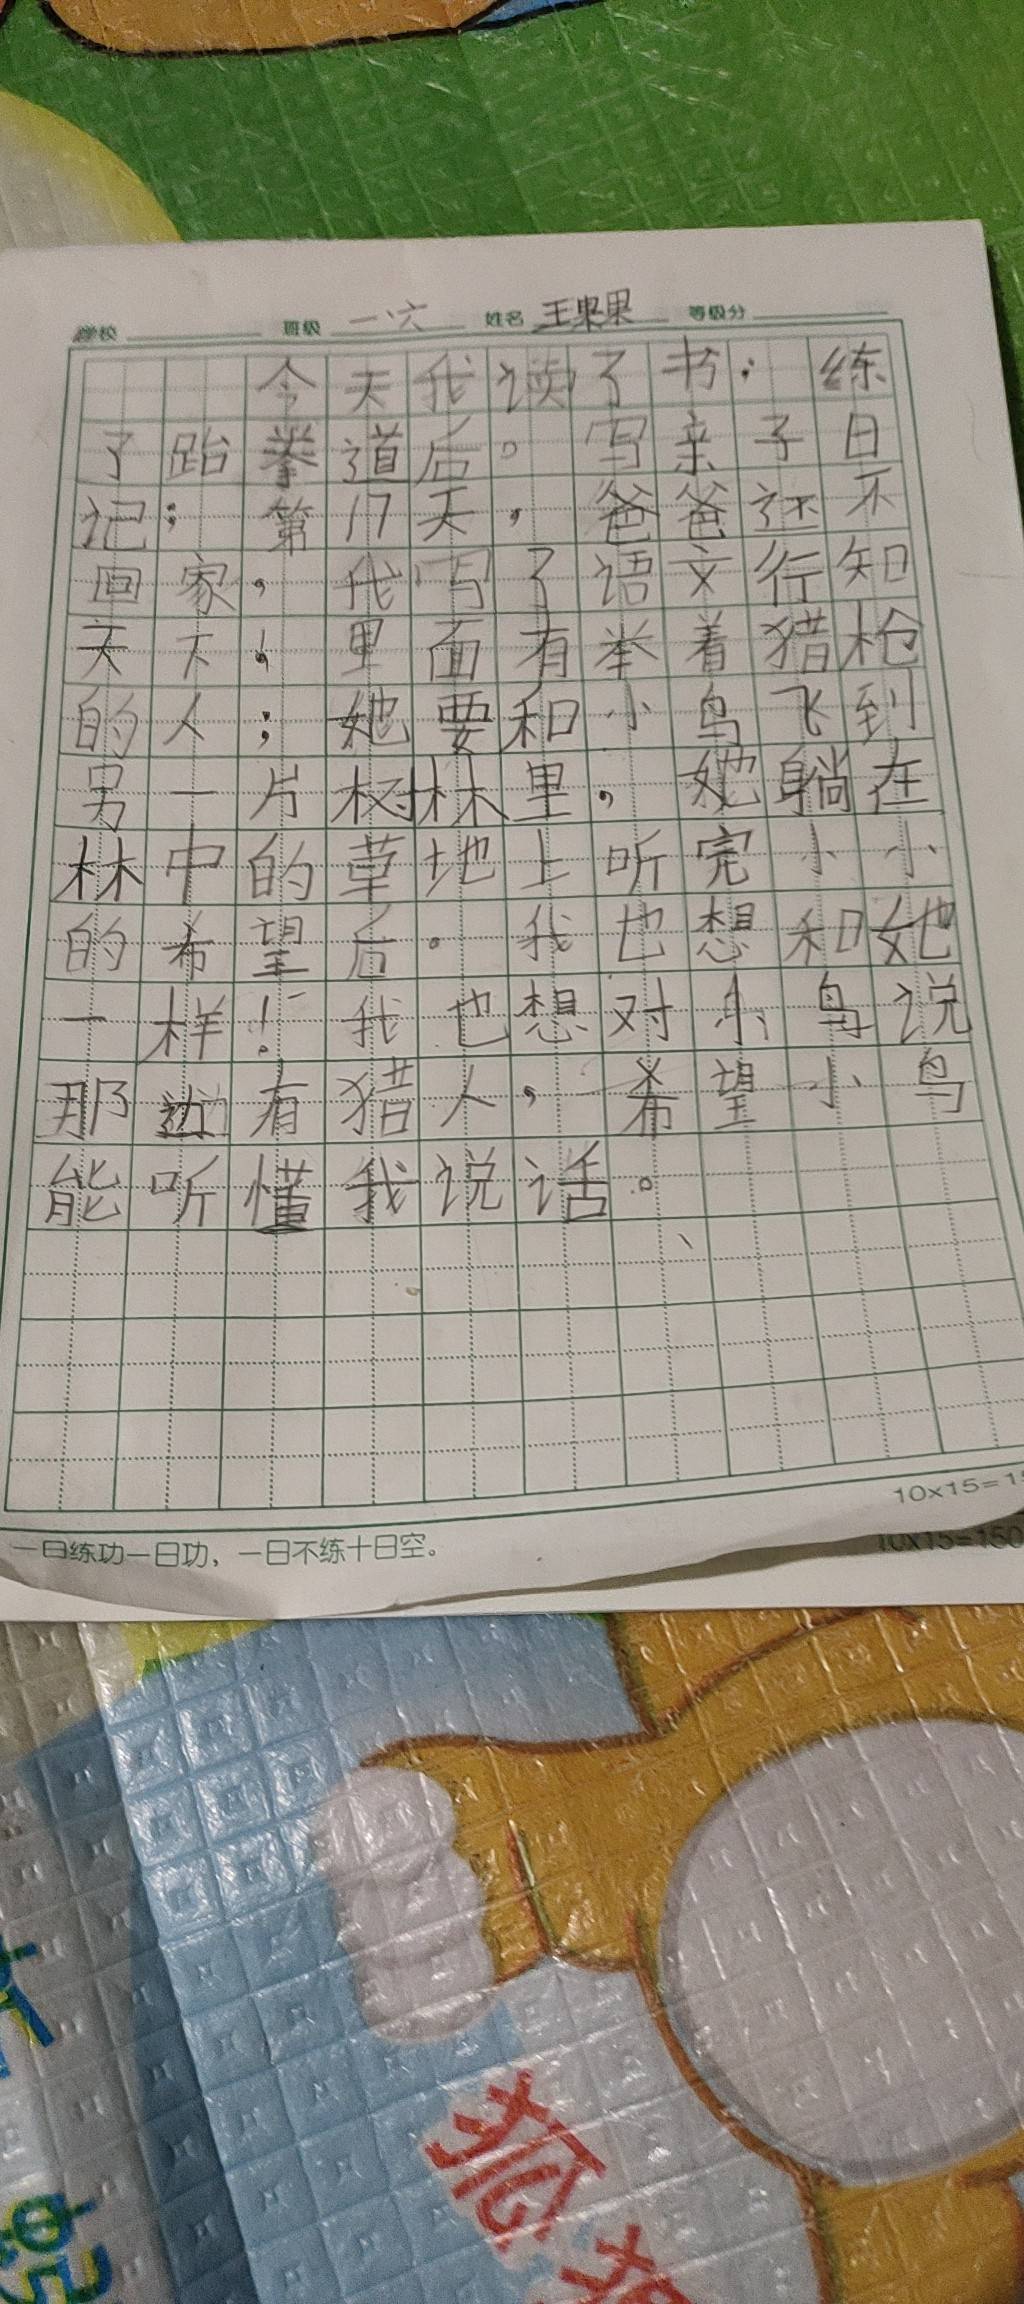 学校 班级 一六 姓名 王果果 等级分
今天我读了书；练
了跆拳道后。写亲子日
记；第17天，爸爸还不
回家，我写了语文行知
天下，里面有举着猎枪
的人；她要和小鸟飞到
另一片树林里，她躺在
林中的草地上听完小小
的希望后。我也想和她
一样！我也想对小鸟说
那边有猎人，希望小鸟
能听懂我说话。
10×15=15
一日练功一日功，一日不练十日空。
10×15=150
狐